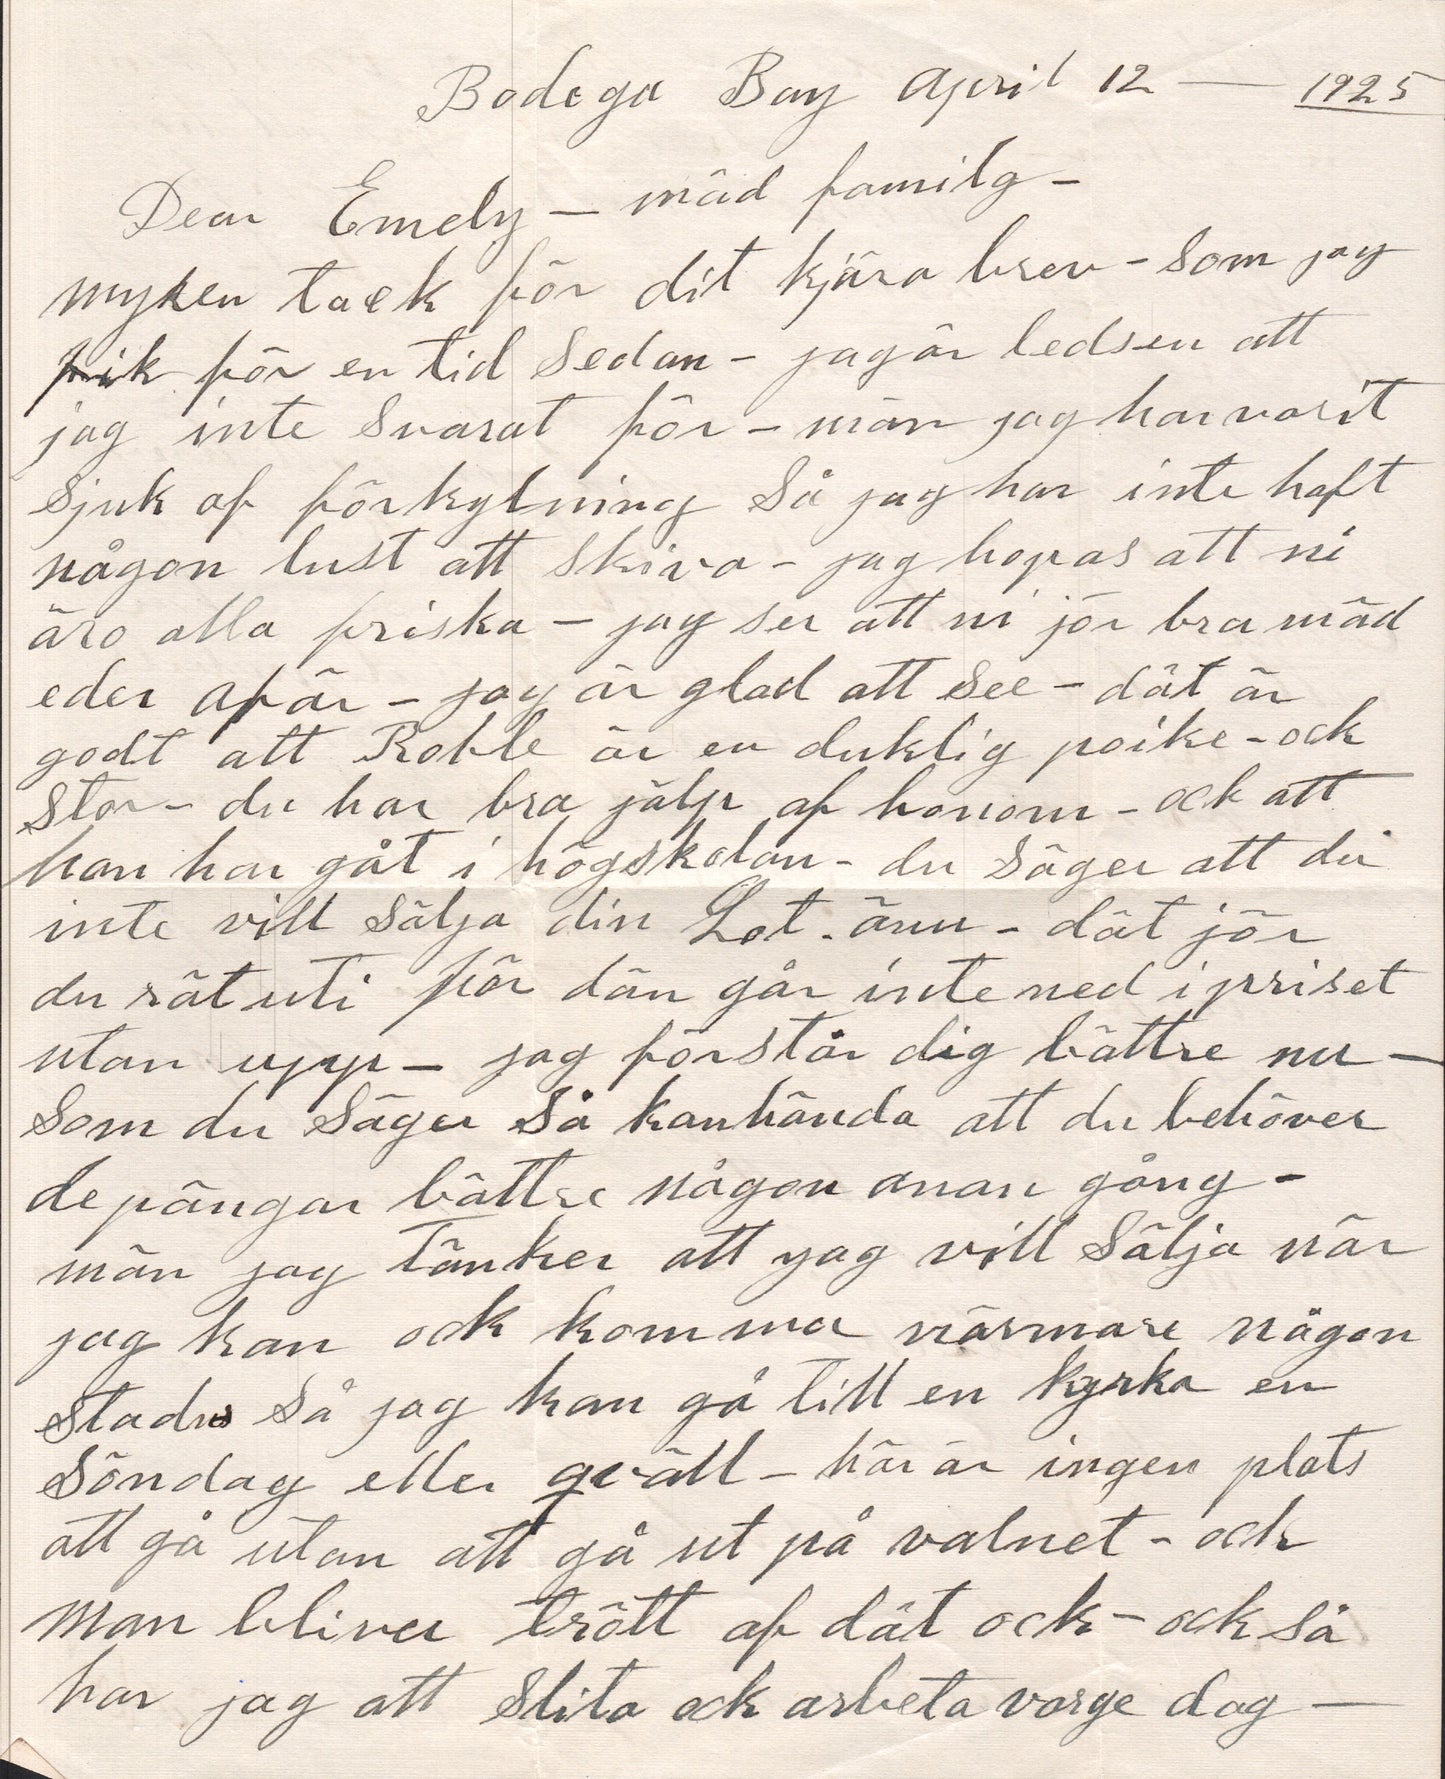 Bodega Bay April 12 — 1925
Dear Emely — mäd familg —
myken tack för dit kjära brev – som jag
fik för en tid sedan – jag är ledsen att
jag inte svarat för – män jag har varit
sjuk af förkylning så jag har inte haft
någon lust att skiva – jag hopas att ni
äro alla friska – jag ser att ni jör bra mäd
eder afär – jag är glad att see – dät är
godt att Roble är en duklig poike – ock
stor – du har bra jälp af honom – ock att
han har gåt i högskolan – du säger att du
inte vill sälja din Lot – änu – dät jör
du rät uti för dän går inte ned i priset
utan upp – jag förstår dig bättre nu –
som du säger så kanhända att du behöver
de pängar bättre någon anan gång –
män jag tänker att yag vill sälja när
jag kan ock komma närmare någon
stads så jag kan gå till en kyrka en
söndag eller qväll – här är ingen plats
att gå utan att gå ut på valnet – ock
man bliver trött af dät ock – ock så
har jag att slita ock arbeta varge dag —